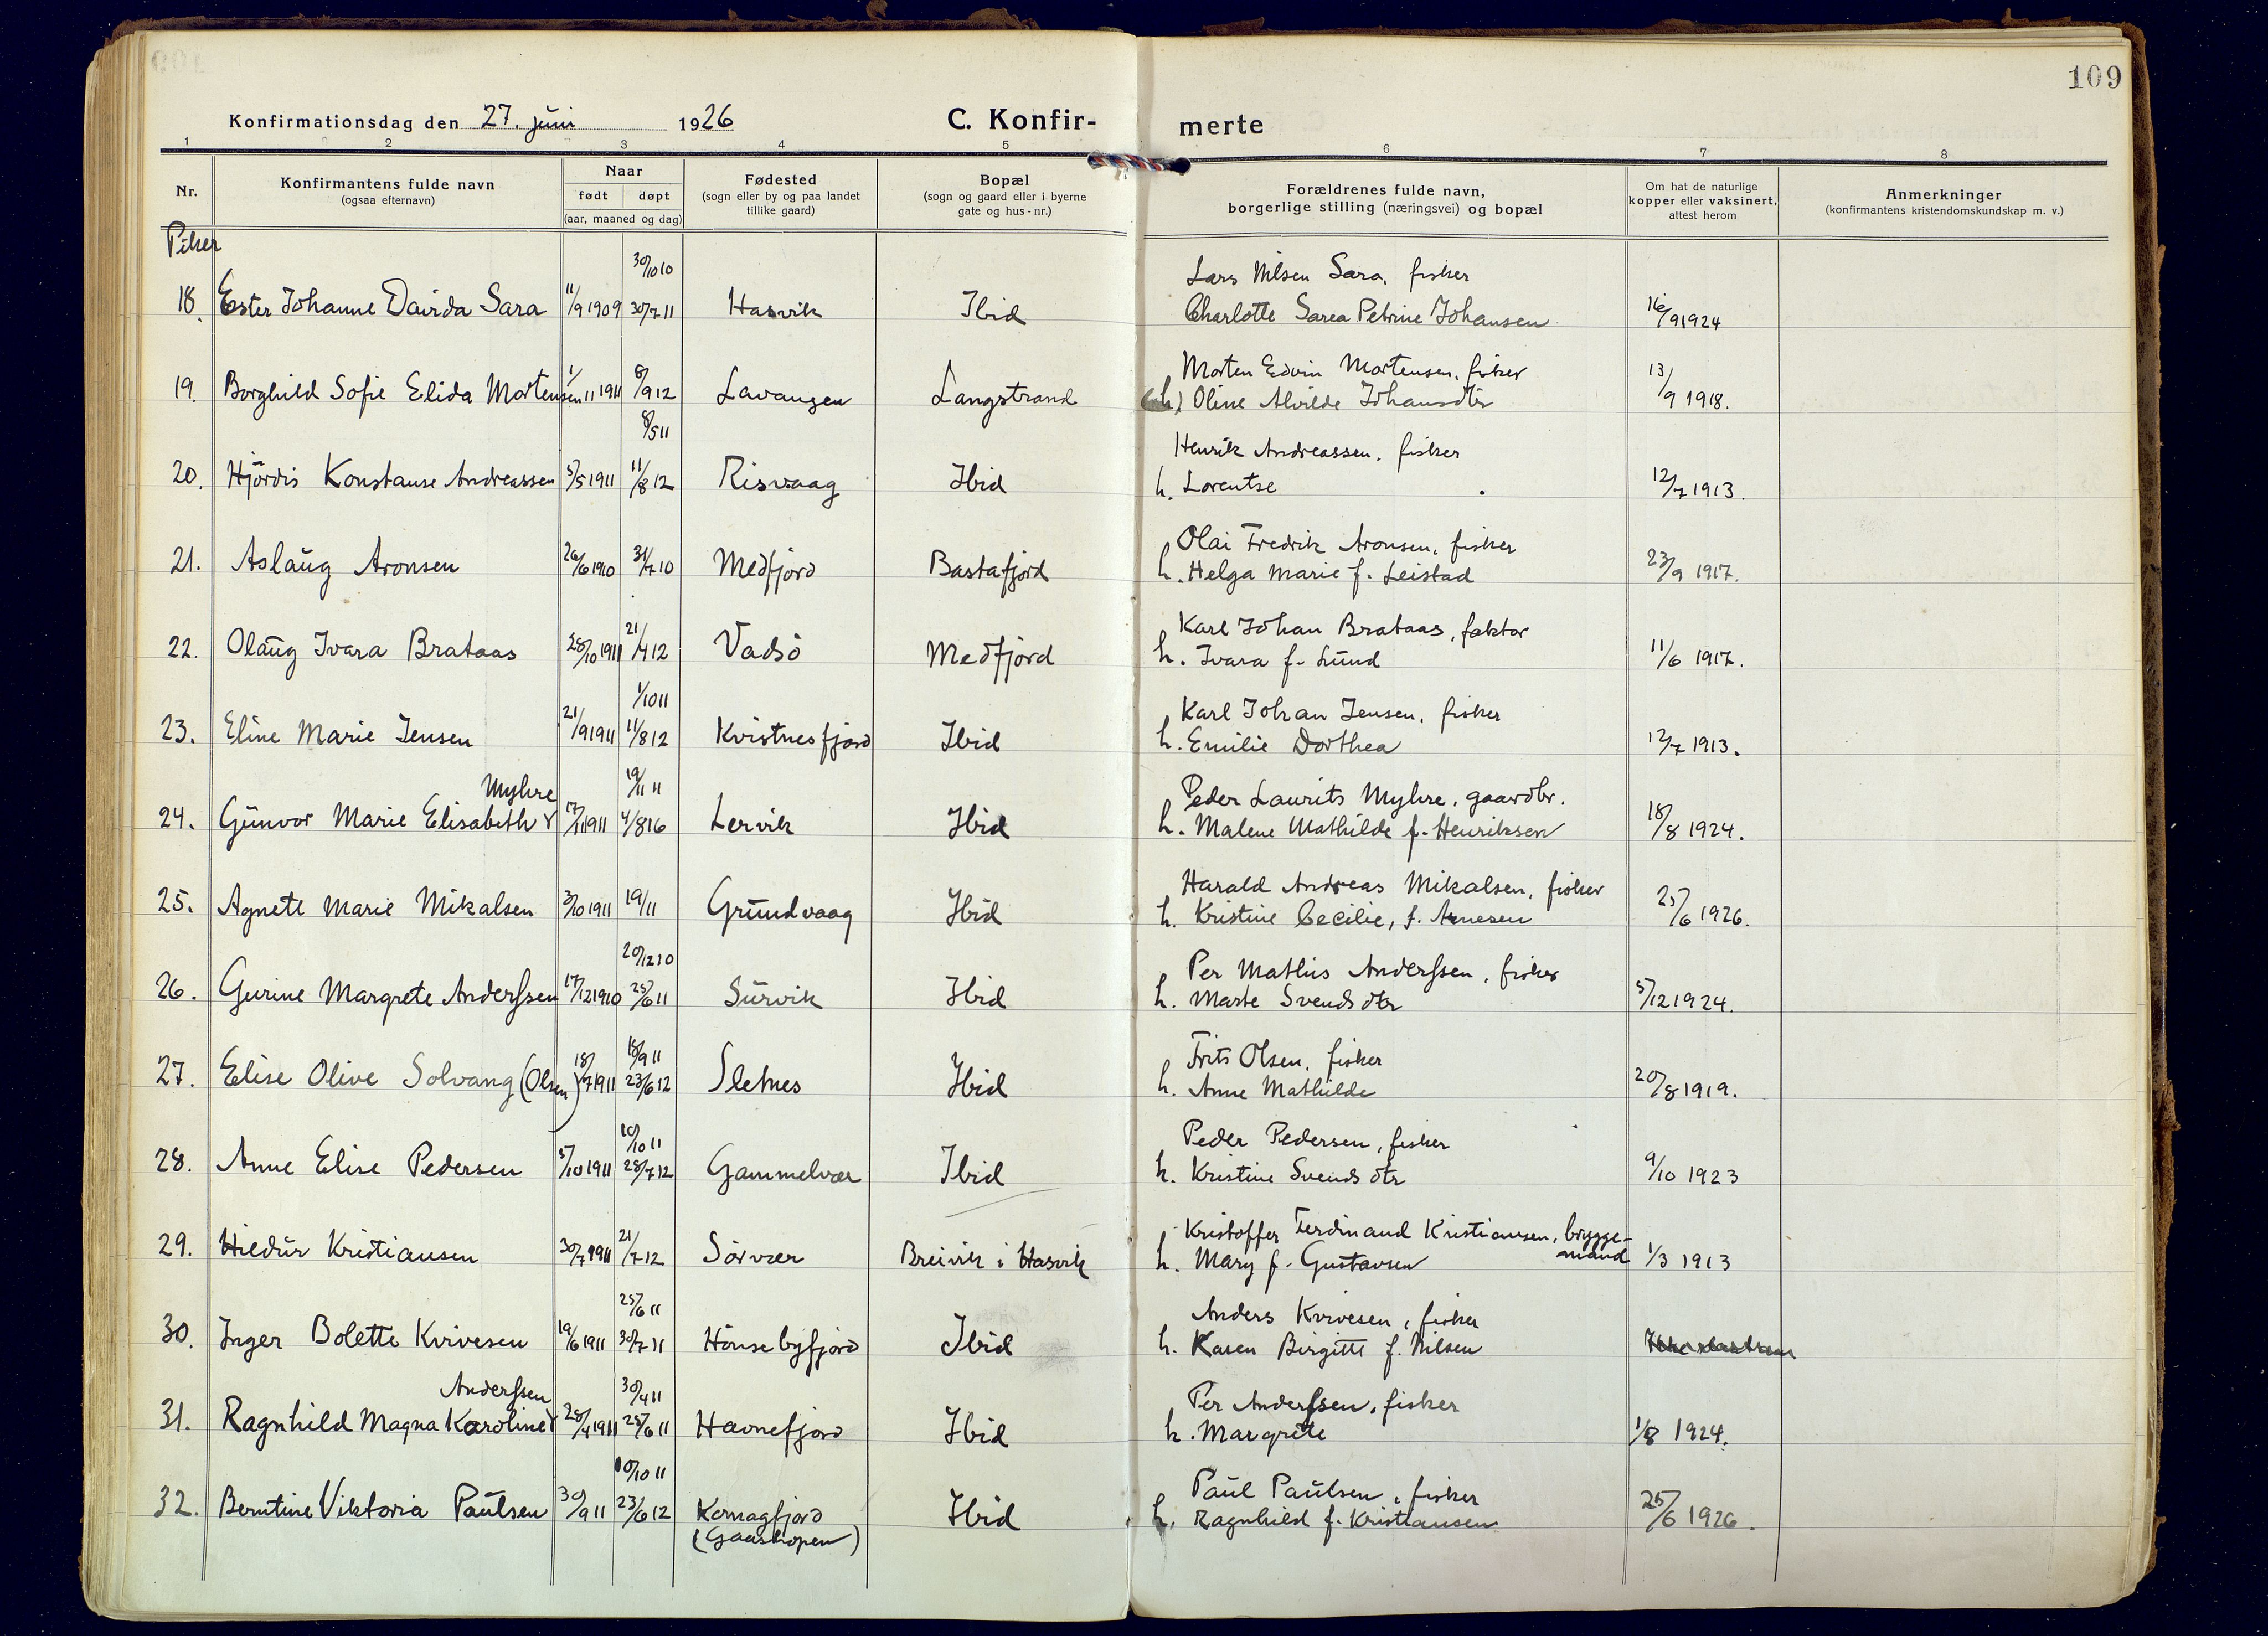 109
Konfirmationsdag den 27. juni 1926 C. Konfir-merte
1 2 3 4 5 6 7 8
Nr.
Konfirmantens fulde navn
(ogsaa efternavn)
Naar
født døpt
(aar, maaned og dag)
Fødested
(sogn eller by og paa landet
tillike gaard)
Bopæl
(sogn og gaard eller i byerne
gate og hus-nr.)
Forældrenes fulde navn,
borgerlige stilling (næringsvei) og bopæl
Om hat de naturlige
kopper eller vaksinert,
attest herom
Anmerkninger
(konfirmantens kristendomskundskap m. v.)
Piker
30/10 10 Lars Nilsen Sara, fisker
18. Ester Johanne Davida Sara 11/9 1909 30/7 11 Hasvik Ibid Charlotte Sarea Petrine Johansen 16/9 1924
Morten Edvin Mortensen, fisker
19. Borghild Sofie Elida Mortensen 1/11 1911 8/9 12 Lavangen Langstrand (h) Oline Alvilde Johansdtr 13/9 1918.
8/5 11 Henrik Andreassen, fisker
20. Hjördis Konstanse Andreassen 5/5 1911 11/8 12 Risvaag Ibid h. Lorentse 12/7 1913.
Olai Fredrik Aronsen, fisker
21. Aslaug Aronsen 26/6 1910 31/7 10 Medfjord Bastafjord h. Helga Marie f. Leistad 23/9 1917.
Karl Johan Brataas, faktor
22. Olaug Ivara Brataas 28/10 1911 21/4 12 Vadsö Medfjord h. Ivara f. Lund 11/6 1917.
1/10 11 Karl Johan Jensen, fisker
23. Eline Marie Jensen 21/9 1911 11/8 12 Kvistnesfjord Ibid h. Emilie Dorthea 12/7 1913.
Myhre 19/11 11 Peder Laurits Myhre, gaardbr.
24. Gunvor Marie Elisabeth 17/11 1911 4/8 16 Lervik Ibid h. Malene Mathilde f. Henriksen 18/8 1924.
Harald Andreas Mikalsen, fisker
25. Agnete Marie Mikalsen 3/10 1911 19/11 Grundvaag Ibid h. Kristine Cecilie, f. Arnesen 25/6 1926.
20/12 10 Per Mathis Anderssen, fisker
26. Gurine Margrete Anderssen 17/12 1910 25/6 11 Survik Ibid h. Marte Svendsdtr 5/12 1924.
18/9 11 Frits Olsen, fisker
27. Elise Olive Solvang (Olsen) 18/7 1911 23/6 12 Sletnes Ibid h. Anne Mathilde 20/8 1919.
10/10 11 Peder Pedersen, fisker
28. Anne Elise Pedersen 5/10 1911 28/7 12 Gammelvær Ibid h. Kristine Svendsdtr 9/10 1923
Kristoffer Ferdinand Kristiansen, brygge-
29. Hildur Kristiansen 30/7 1911 21/7 12 Sörvær Breivik i Hasvik h. Mary f. Gustavsen mand 1/3 1913
25/6 11 Anders Kvivesen, fisker
30. Inger Bolette Kvivesen 19/6 1911 30/7 11 Hönsebyfjord Ibid h. Karen Birgitte f. Nilsen
Anderssen 30/4 11 Per Anderssen, fisker
31. Ragnhild Magna Karoline 28/4 1911 25/6 11 Havnefjord Ibid h. Margrete 1/8 1924.
10/10 11 Paul Paulsen, fisker
32. Berntine Viktoria Paulsen 30/9 11 23/6 12 Komagfjord Ibid h. Ragnhild f. Kristiansen 25/6 1926.
(Gaashopen)